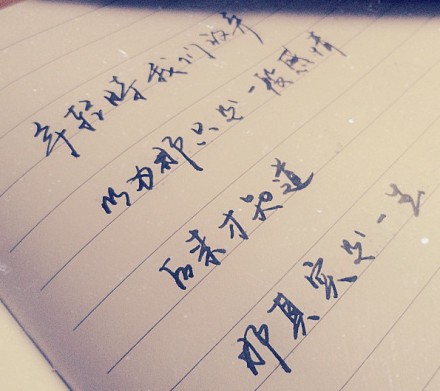 年轻时我们放弃
以为那只是一段感情
后来才知道
那其实是一生